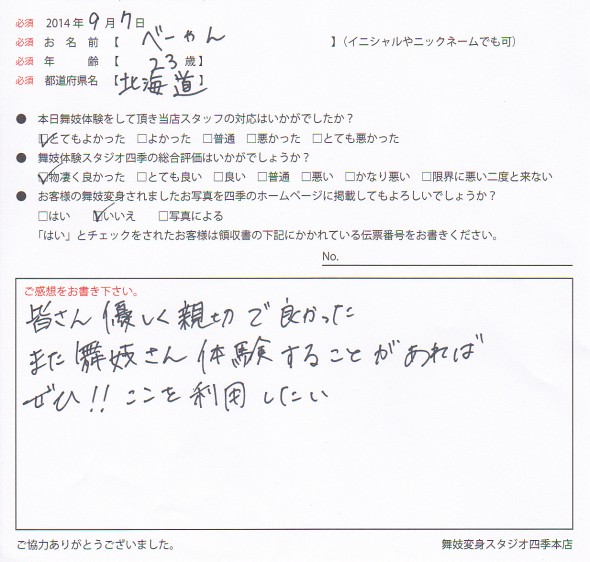 必須 2014年 9月 7日
必須 お名前【 べーやん 】(イニシャルやニックネームでも可)
必須 年齢【 23歳】
必須 都道府県名【北海道】
● 本日舞妓体験をして頂き当店スタッフの対応はいかがでしたか?
☑とてもよかった □よかった □普通 □悪かった □とても悪かった
● 舞妓体験スタジオ四季の総合評価はいかがでしょうか?
☑物凄く良かった □とても良い □良い □普通 □悪い □かなり悪い □限界に悪い二度と来ない
● お客様の舞妓変身されましたお写真を四季のホームページに掲載してもよろしいでしょうか?
□はい ☑いいえ □写真による
「はい」とチェックをされたお客様は領収書の下記にかかれている伝票番号をお書きください。
No.
ご感想をお書き下さい。
皆さん優しく親切で良かった
また舞妓さん体験することがあれば
ぜひ!!ここを利用したい
ご協力ありがとうございました。 舞妓変身スタジオ四季本店